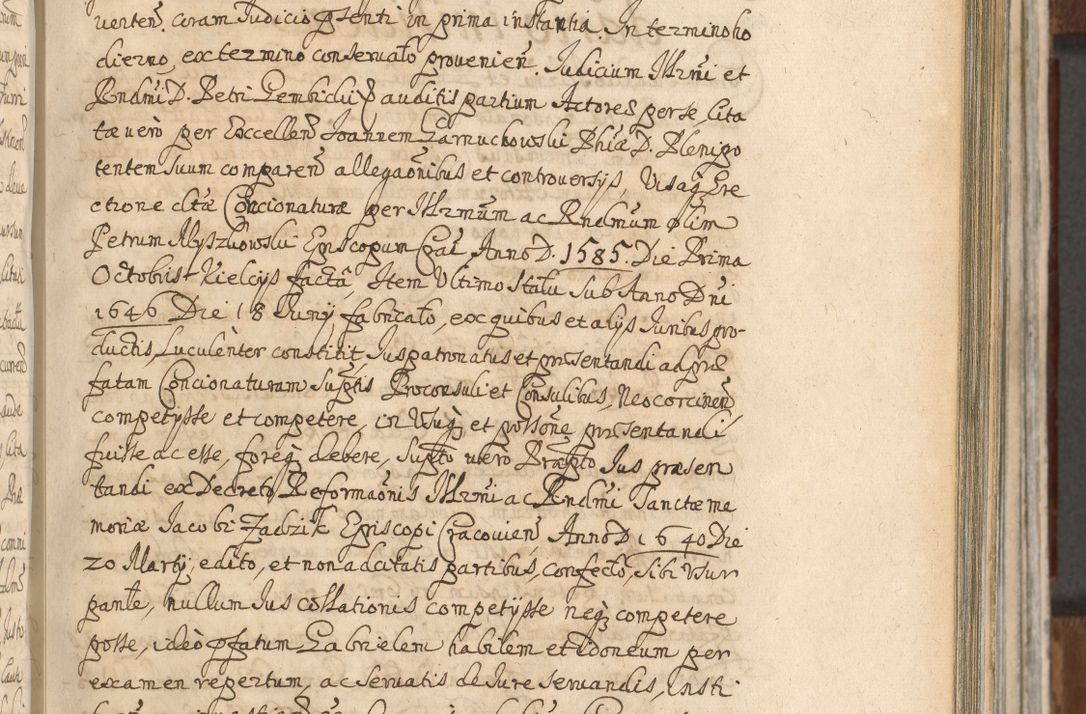 uenteñ. coram Iudicio pñsenti in prima instantia. In termino ho
dierno, ex termino conseruato prouenieñ. Iudicium Illrmi et
Rndmi D. Petri Gembicki auditis partium Actores per se, Cita
tæ uero per Excellen Joannem Garnuchowski Phiæ D. Plenipo
tentem suum compareñ allegaõnibus et controuersijs, Visaq Ere
ctione ditæ Concionaturæ per Illrmum ac Rndmum olim
Petrum Myszkowski Episcopum Cral Anno D. 1585. Die Prima
Octobris Kielcijs facta, Item Vltimo Statu sub Anno Dni
1646 Die 18 Iunij fabricato, ex quibus et alijs Iuribus pro-
ductis, Luculenter constitit Iuspatronatus et præsentandi ad præ
fatam Concionaturam supтis Proconsuli et Consulibus, Neocorcineñ
competijsse et competere, in Vsuq et possõne præsentandi
fuisse ac esse, foreq debere, supto uero Præpto Ius præsen
tandi ex Decreto Reformaõnis Illrmi ac Rndmi Sanctæ me
moriæ Iacobi Zadzik Episcopi Cracouieñ Anno D 1640 Die
20 Martij, edito, et non adcitatis partibus, confecto, sibi Vsur
pante, nullum Ius collationis competijsse neq competere
posse, ideò pfatum Gabrielem habilem et idoneum per
examen repertum, ac seruatis de Iure seruandis, insti